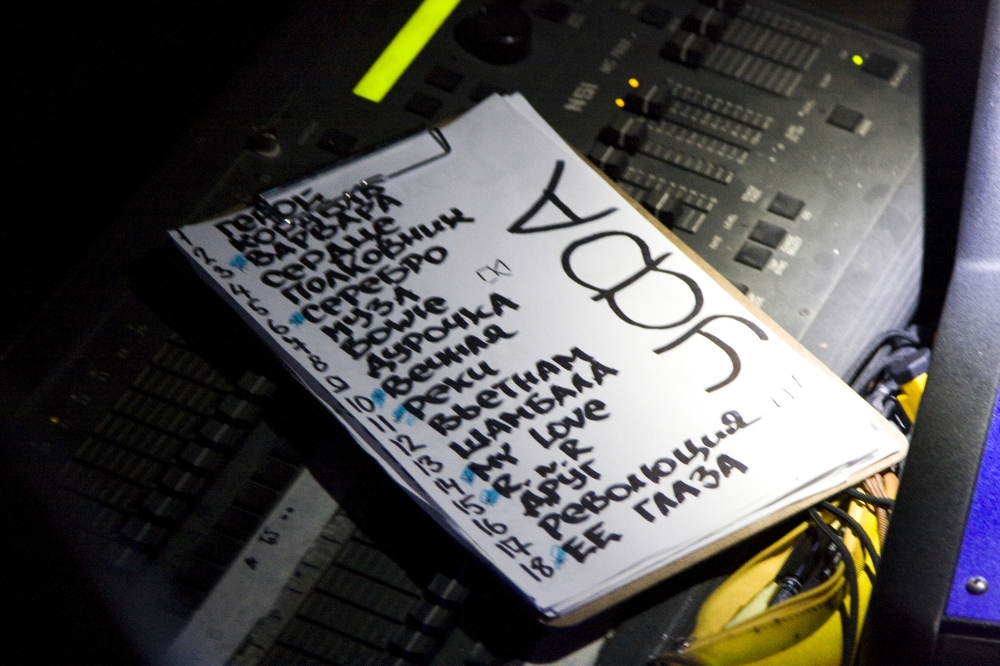 УФА
1 ГЕРОЙ
2
3 ВАРВАРА
4 СЕРДЦЕ
5 ПОЛКОВНИК
6 СЕРЕБРО
7 МУЗА
8 BOWIE
9 ДУРОЧКА
10 ВЕЧНАЯ
11 РЕКИ
12 ВЬЕТНАМ
13 ШАМБАЛА
14 MY LOVE
15 R. Ñ R
16 ДРУГ
17 РЕВОЛЮЦИЯ
18 ЕЕ ГЛАЗА